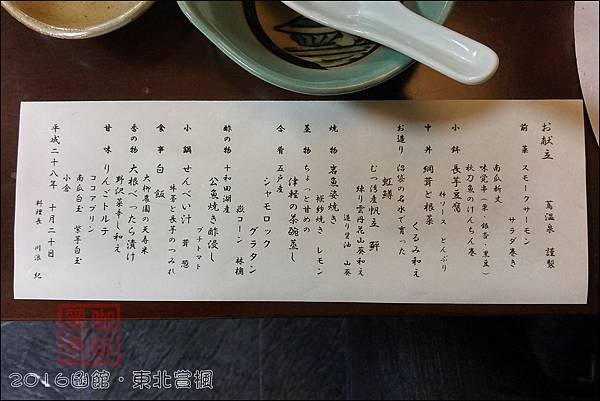 お献立
蔦温泉 謹製
前菜 スモークサーモン
サラダ巻き
南瓜新丈
味覚串(栗、銀杏・黒豆)
秋刀魚のけんちん巻
小鉢 長芋豆腐
梓ソース とんぶり
中丼 網茸と根菜
くるみ和え
お造り 沼袋の名水で育った
虹鱒
むつ湾産帆立 鮃
練り雲丹花山葵和え
造り醤油 山葵
焼物 岩魚姿焼き
梗紗焼き レモン
蒸物 ちょっと甘めの
津軽の茶碗蒸し
合肴 五戸産
シャモロック
グラタン
嶽コーン 林檎
プチトマト
酢の物 十和田湖産
公魚焼き酢浸し
小鍋 せんべい汁 茸 葱
牛蒡と長芋のつみれ
食事 白飯
大柳農園の天寿米
香の物 大根べったら漬け
野沢菜辛し和え
甘味 りんごトルテ
ココアプリン
南瓜白玉 紫芋白玉
小倉
平成二十八年 十月二十日
料理長 川浪 紀
2016函館・東北嘗楓